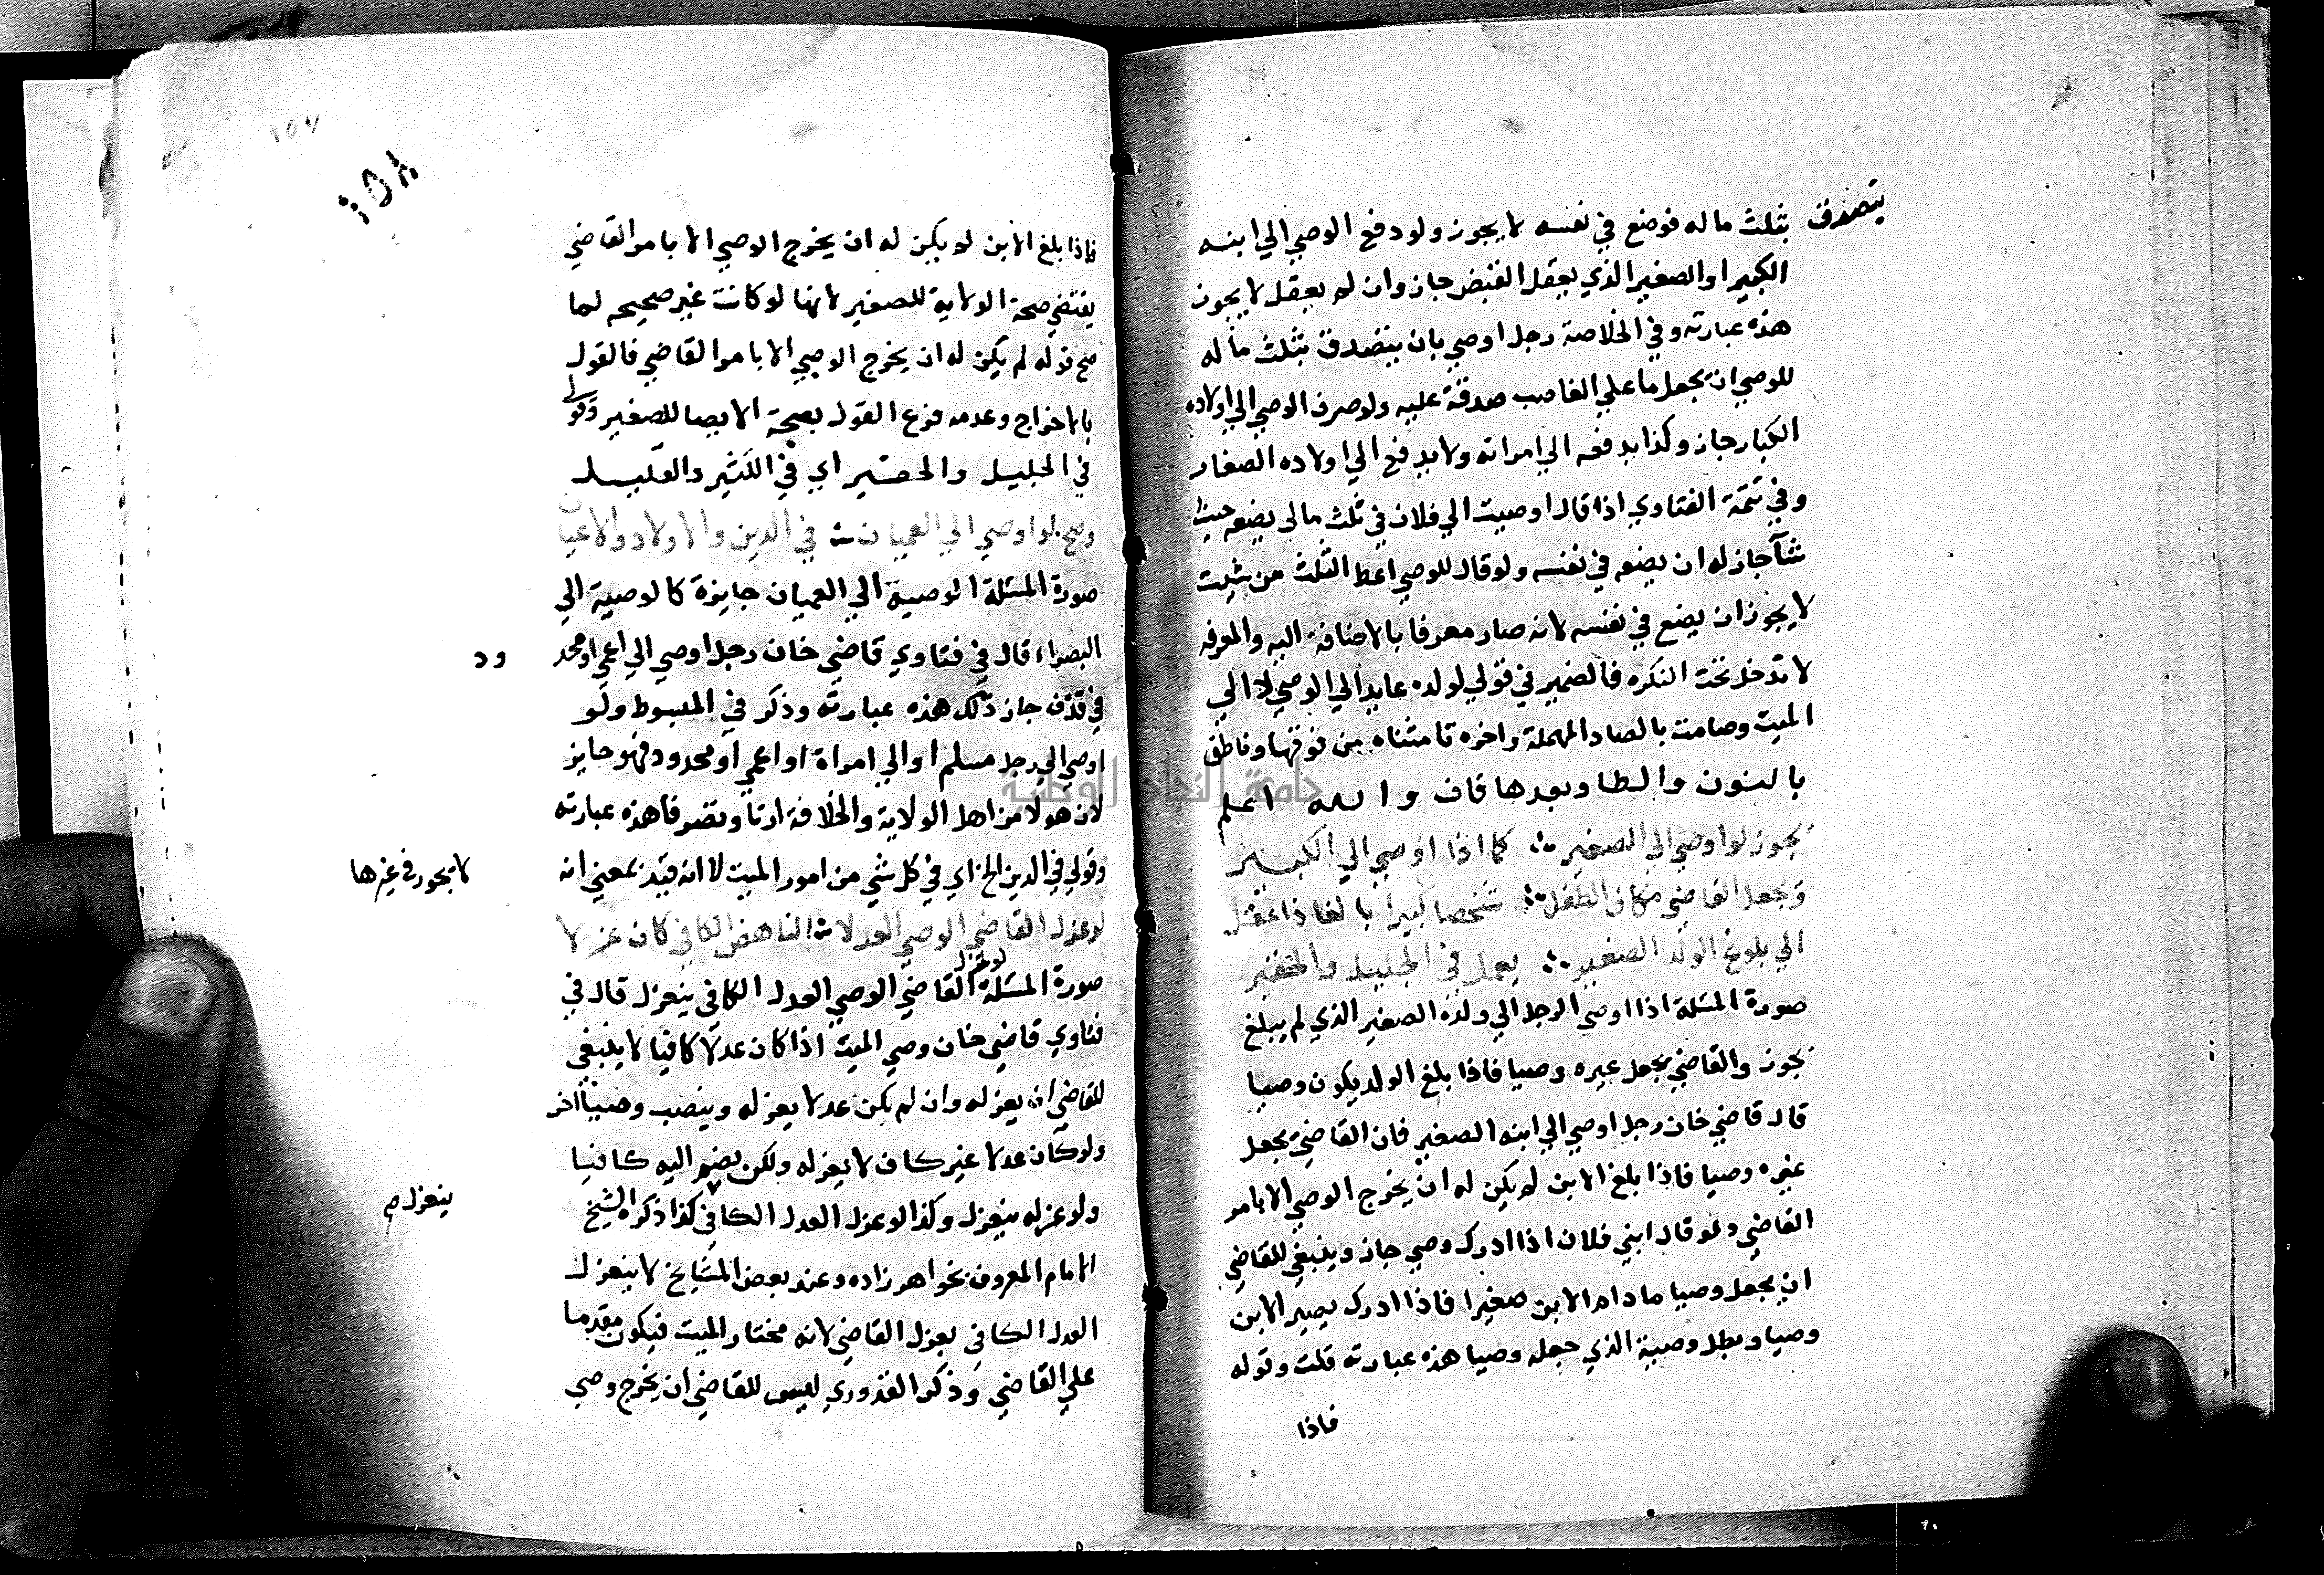 يتصدق بثلث ماله فوضع في نفسه لا يجوز ولو دفع الوصي الي ابنه
الكبير او الصغير الذي يعقل القبض جاز وان لم يعقل لا يجوز
هذه عبارته وفي الخلاصة رجل اوصي بان يتصدق بثلث ماله
للوصي ان يجعل ما علي الغاصب صدقة عليه ولو صرف الوصي الي اولاده
الكبار جاز وكذا يدفعه الي امراته ولا يدفع الي اولاده الصغار
وفي تتمة الفتاوي اذا قال اوصيت الي فلان في ثلث مالي يضعه حيث
شآ جاز له ان يضعه في نفسه ولو قال للوصي اعط الثلث من شيت
لا يجوز ان يضع في نفسه لانه صار معرفا بالاضافة اليه والمعرفه
لا تدخل تحت النكره فالضمير في قولي لولده عايد الي الوصي لا الي
الميت وصامت بالصاد المهملة واخره تا مثناه من فوقها وناطق
بالنون والطا وبعدها قاف والله اعلم
يجوز لو اوصي الي الصغير كما اذا اوصي الي الكبير
ويجعل القاضي مكان الطفل شخصا كبيرا بالغا ذا عقل
الي بلوغ الولد الصغير يعمل في الجليل والحقير
صورة المسئلة اذا اوصي الرجل الي ولده الصغير الذي لم يبلغ
يجوز والقاضي يجعل غيره وصيا فاذا بلغ الولد يكون وصيا
قال قاضي خان رجل اوصي الي ابنه الصغير فان القاضي يجعل
غيره وصيا فاذا بلغ الابن لم يكن له ان يخرج الوصي الا بامر
القاضي ولو قال ابني فلان اذا ادرك وصي جاز وينبغي للقاضي
ان يجعل وصيا مادام الابن صغيرا فاذا ادرك يصير الابن
وصيا وبطل وصية الذي جعله وصيا هذه عبارته قلت وقوله
فاذا
١٥٧
١٥٨
فاذا بلغ الابن لم يكن له ان يخرج الوصي الا بامر القاضي
يقتضي صحة الولاية للصغير لانها لو كانت غير صحيحه لما
صح قوله لم يكن له ان يخرج الوصي الا بامر القاضي فالقول
بالاخراج وعدمه فرع القول بصحة الايصا للصغير وقولي
في الجليل والحقير اي في الكثير والقليل
وصح لو اوصي الي العميان في الدين والاولاد والاعيان
صورة المسئلة الوصية الي العميان جايزة كالوصية الي
البصراء قال في فتاوي قاضي خان رجل اوصي الي اعمي او محد
ود
في قذف جاز ذلك هذه عبارته وذكر في المبسوط ولو
اوصي الي رجل مسلم او الي امراة او اعمي او محدود فهو جايز
لان هولا من اهل الولاية والخلافة ارثا وتصرفا هذه عبارته
وقولي في الدين الخ اي في كل شي من امور الميت لا انه قيد بمعني انه
لا يجوز في غيرها
لو عزل القاضي الوصي العدلا الناهض الكافي كان عزلا
صورة المسئلة لو عزل القاضي الوصي العدل الكافي ينعزل قال في
فتاوي قاضي خان وصي الميت اذا كان عدلا كافيا لا ينبغي
للقاضي ان يعزله وان لم يكن عدلا يعزله وينصب وصيا اخر
ولو كان عدلا غير كاف لا يعزله ولكن يضم اليه كافيا
ولو عزله ينعزل وكذا لو عزل العدل الكافي كذا ذكره الشيخ
ينعزل م
الامام المعروف بخواهر زاده وعند بعض المشايخ لا ينعزل
العدل الكافي بعزل القاضي لانه مختار الميت فيكون مقدما
علي القاضي وذكر القدوري ليس للقاضي ان يخرج وصي
جامعة النجاح الوطنية